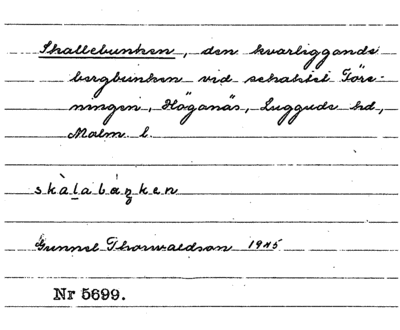 Skallebunken, den kvarliggande
bergbunken vid schaktet Före-
ningen, Höganäs, Luggude hd,
Malm. l.
skàlabáŋken
Gunnel Thorwaldson 1945
Nr 5699.